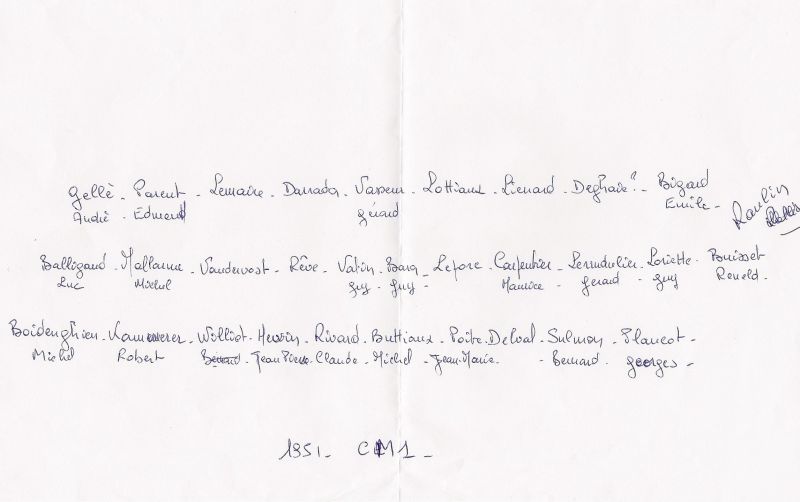 Gellè - Parent - Lemaire - Darrador - Vasseur - Lottiaux - Lienard - Deghaie? - Bizard
André - Edmond Gérard Emile -
Raulin
Balligand - Mallarme - Vandevost - Rêve - Vatin - Barq - Lepore - Carpentier - Lermdulier - Loriette - Buisset
Luc Michel Guy - Guy - Maurice - Gerard - Guy Renold -
Boidenghien - Kammerer - Williot - Hervin - Rivard - Buttiaux - Poite - Delval - Sulmon - Plancot -
Michel Robert Bernard - Jean Pierre - Claude - Michel - Jean-Marie - - Bernard - georges -
1951 - CM1 -